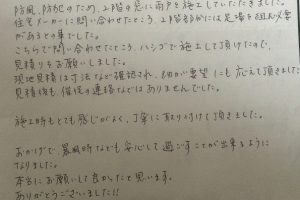 防風、防犯のため、2階の窓に雨戸を施工していただきました。
住宅メーカーに問い合わせたところ、2階部分には足場を組む必要
があるとの事でした。
こちらで問い合わせたところ、ハシゴで施工して頂けたので、
見積りをお願いしました。
現地見積は寸法など確認され、細かい要望にも応えて頂きました。
見積後も、催促の連絡などはありませんでした。
施工時もとても感じがよく、丁寧に取り付けて頂きました。
おかげで、暴風時なども安心して過ごすことが出来るように
なりました。
本当にお願いして良かったと思います。
ありがとうございました!!